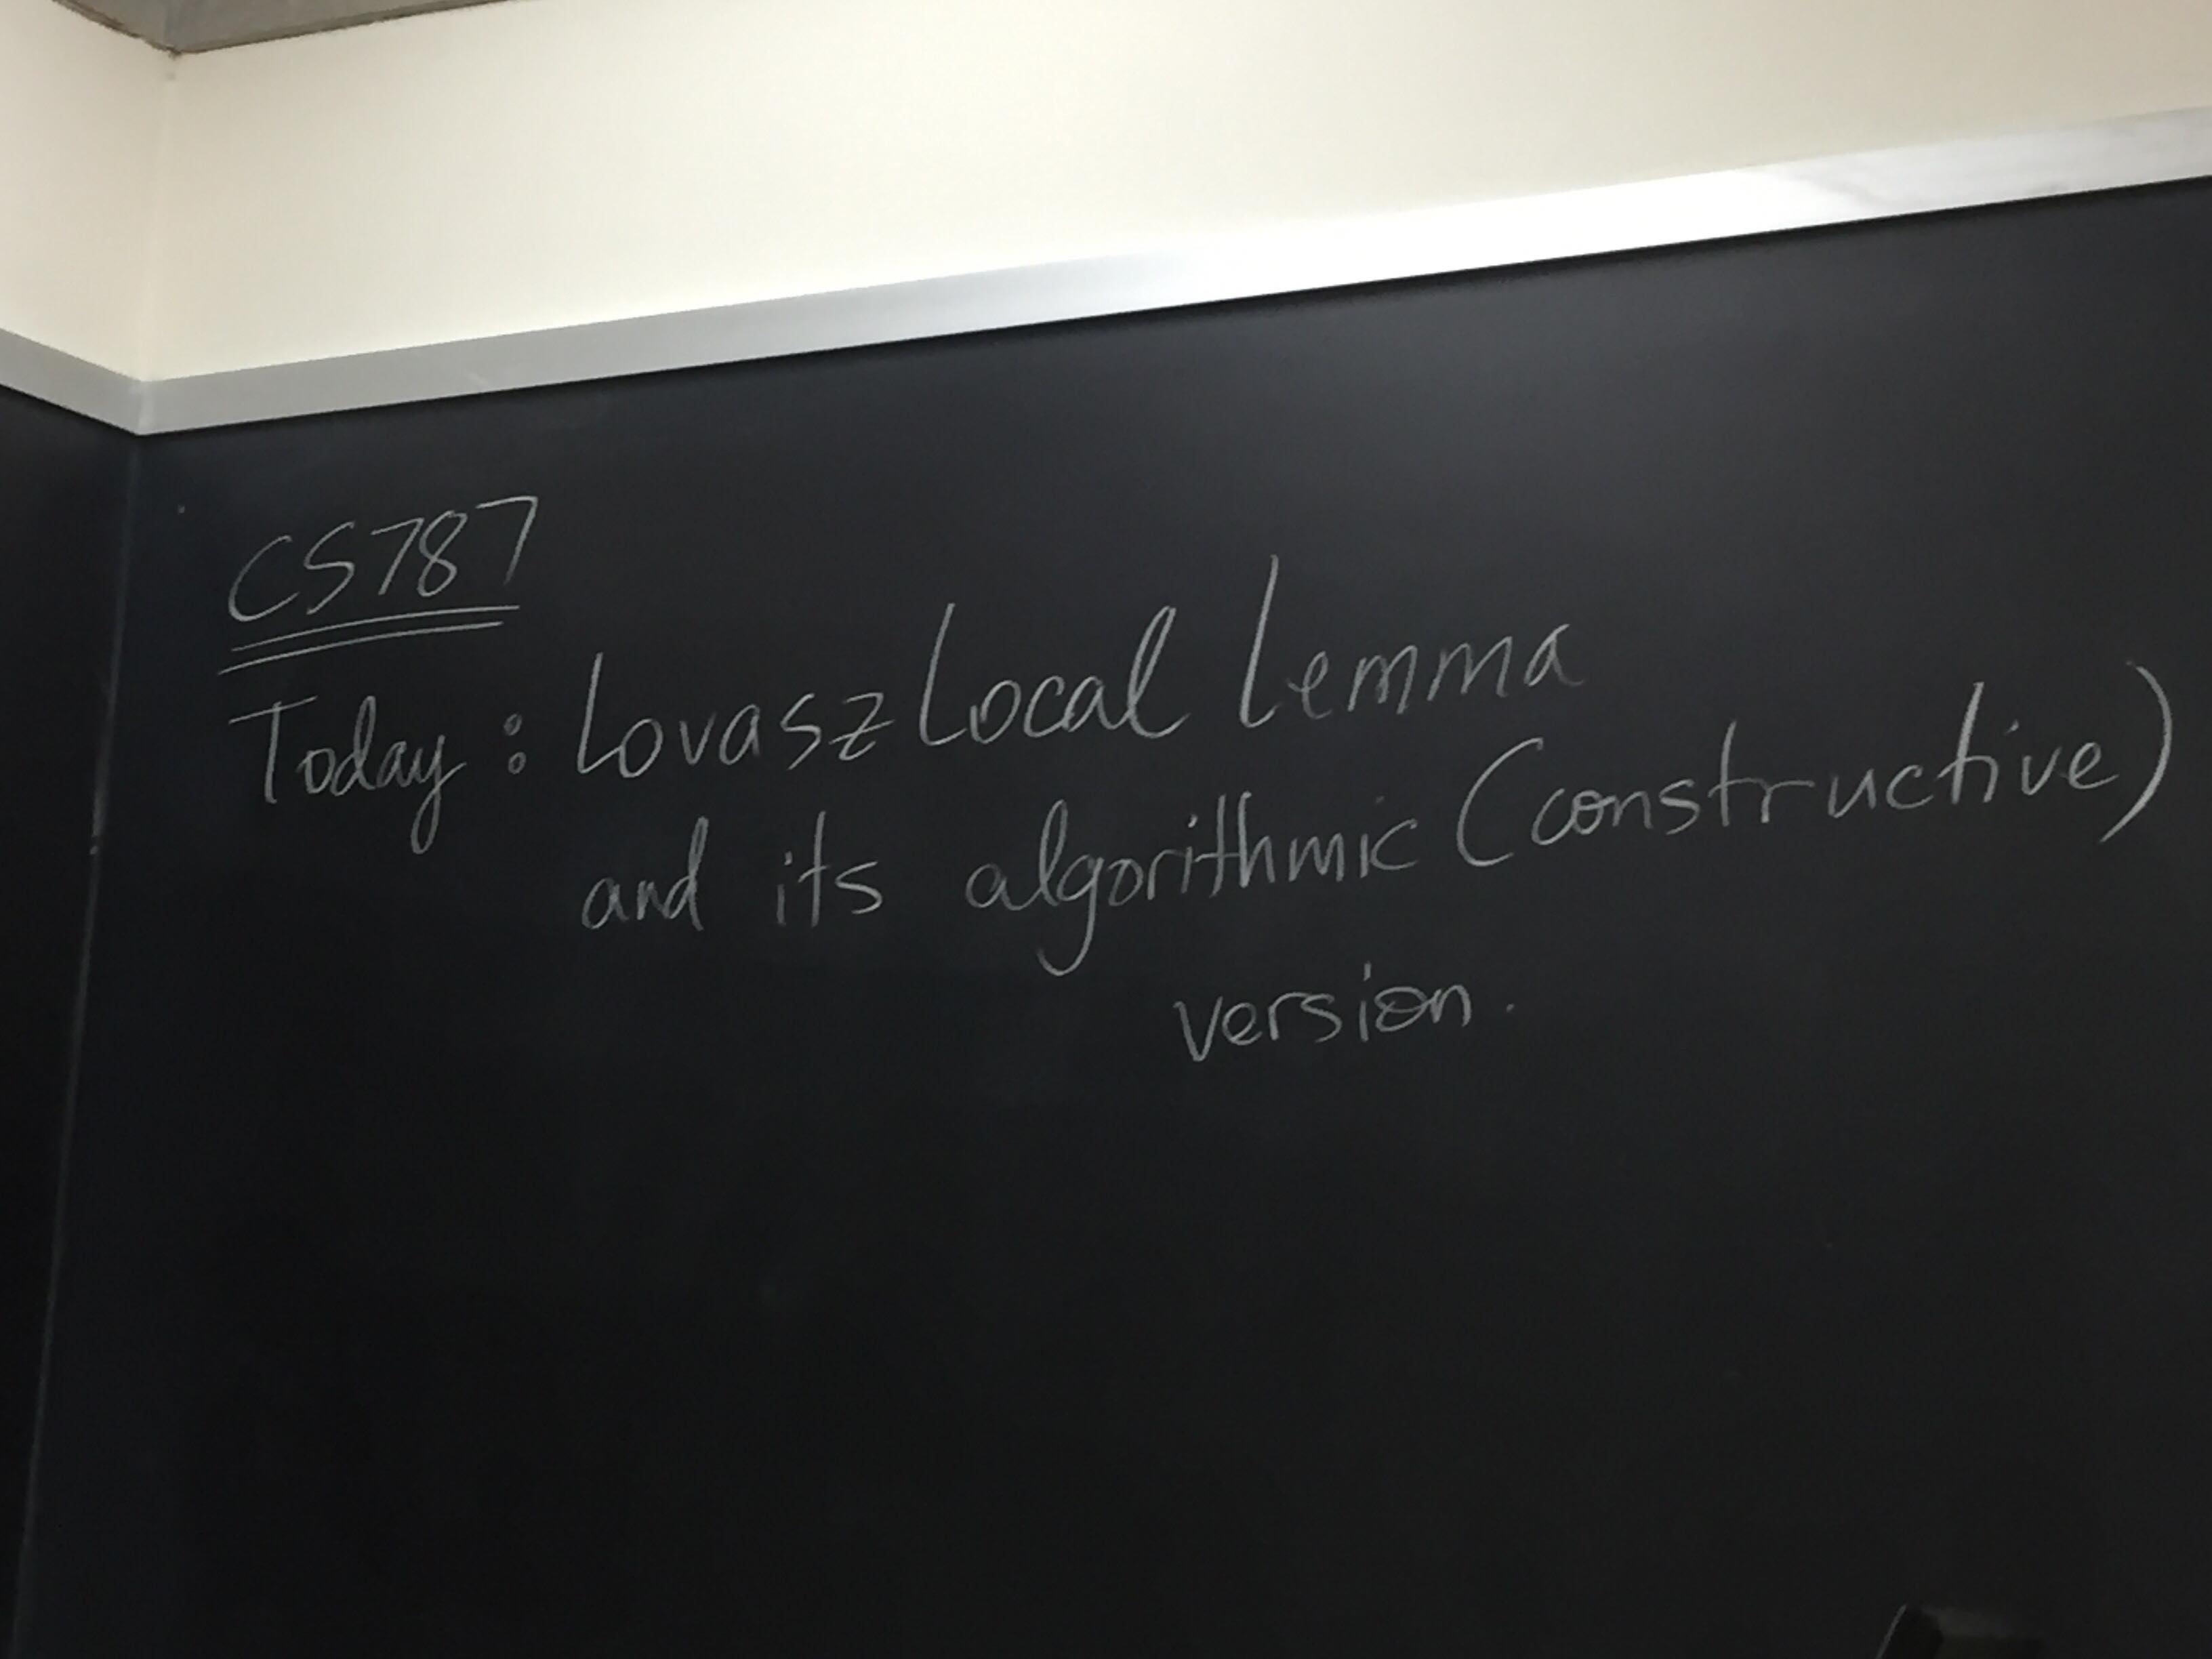 CS787
Today: Lovasz Local Lemma
and its algorithmic (constructive)
version.